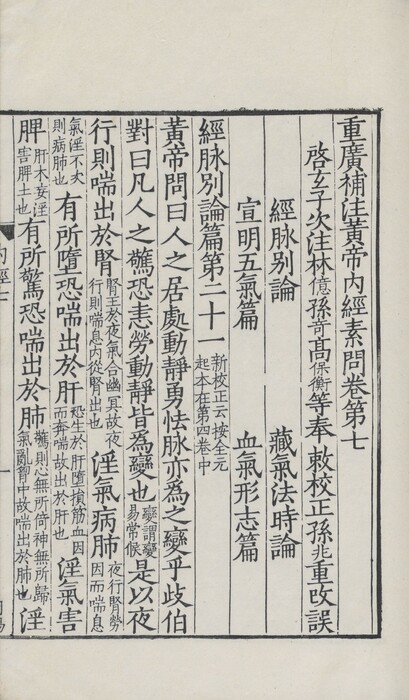 重廣補注黃帝內經素問卷第七
啓玄子次注林億孫奇高保衡等奉敕校正孫兆重改誤
經脉別論 藏氣法時論
宣明五氣篇 血氣形志篇
經脉別論篇第二十一新校正云按全元起本在第四卷中
黃帝問曰人之居處動靜勇怯脉亦為之變乎歧伯
對曰凡人之驚恐恚勞動靜皆為變也變謂變易常候是以夜
行則喘出於腎腎王於夜氣合幽冥故夜行則喘息內從腎出也淫氣病肺夜行腎勞因而喘息
氣淫不次則病肺也有所墮恐喘出於肝恐生於肝墮損筋血因而奔喘故出於肝也淫氣害
脾肝木妄淫害脾土也有所驚恐喘出於肺驚則心無所倚神無所歸氣亂胷中故喘出於肺也淫